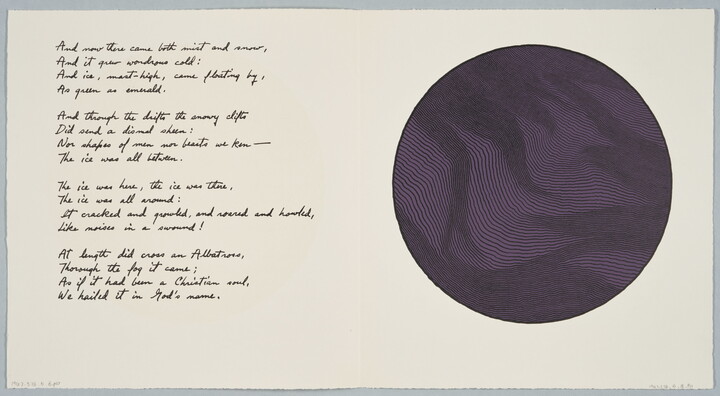 And now there came both mist and snow,
And it grew wondrous cold:
And ice, mast-high, came floating by,
As green as emerald.
And through the drifts the snowy clifts
Did send a dismal sheen:
Nor shapes of men nor beasts we ken—
The ice was all between.
The ice was here, the ice was there,
The ice was all around:
It cracked and growled, and roared and howled,
Like noises in a swound!
At length did cross an Albatross,
Thorough the fog it came;
As if it had been a Christian soul,
We hailed it in God's name.